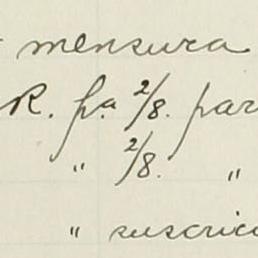 mensura
R. pa. 2/8. par
" 2/8. "
" suscric